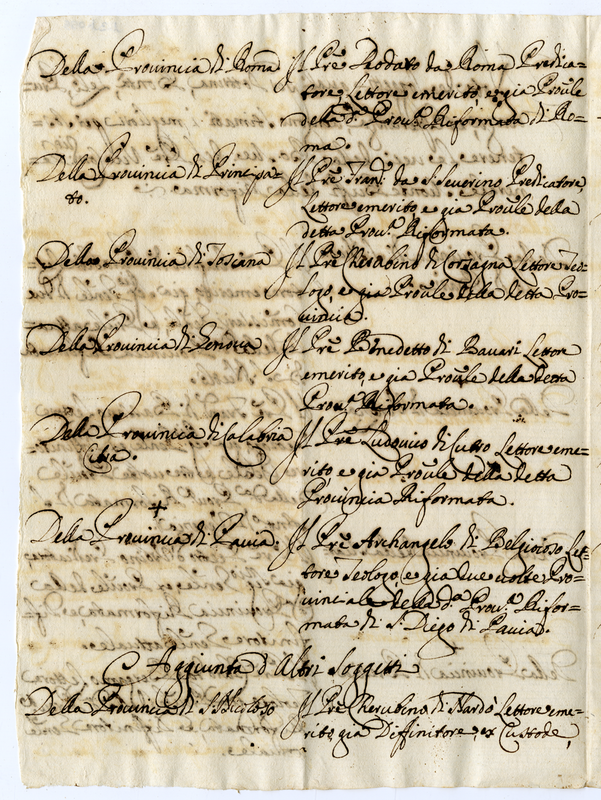 Della Provincia di Roma Il Prē Deodato da Roma Predica=
tore Lettore emerito, e già Proūle
della dᵃ. Provᵃ. Riformata di Ro=
ma.
Della Provincia di Principa= Il Prē Franᶜ. da S. Severino Predicatore,
to. Lettore emerito e già Proūle della
detta Provᵃ. Riformata.
Della Provincia di Toscana Il Prē Cherubino di Corzagna Lettore Teo=
logo, e già Proūle della detta Pro=
vincia.
Della Provincia di Genova Il Prē Benedetto di Bavari Lettore
emerito, e già Proūle della detta
Provᵃ. Riformata.
Della Provincia di Calabria Il Prē Ludovico di Cutro Lettore eme=
Citrà. rito e già Proūle della detta
Provincia Riformata.
+
Della Provincia di Pavia. Il Prē Archangelo di Belgioioso Let=
tore Teologo, e già due volte Pro=
vinciale della dᵃ. Provᵃ. Rifor=
mata di S. Diego di Pavia.
Aggiunta d'Altri Soggetti
Della Provincia di S. Nicolò Il Prē Cherubino di Nardò Lettore eme=
rito, già Diffinitore, ex Custode,